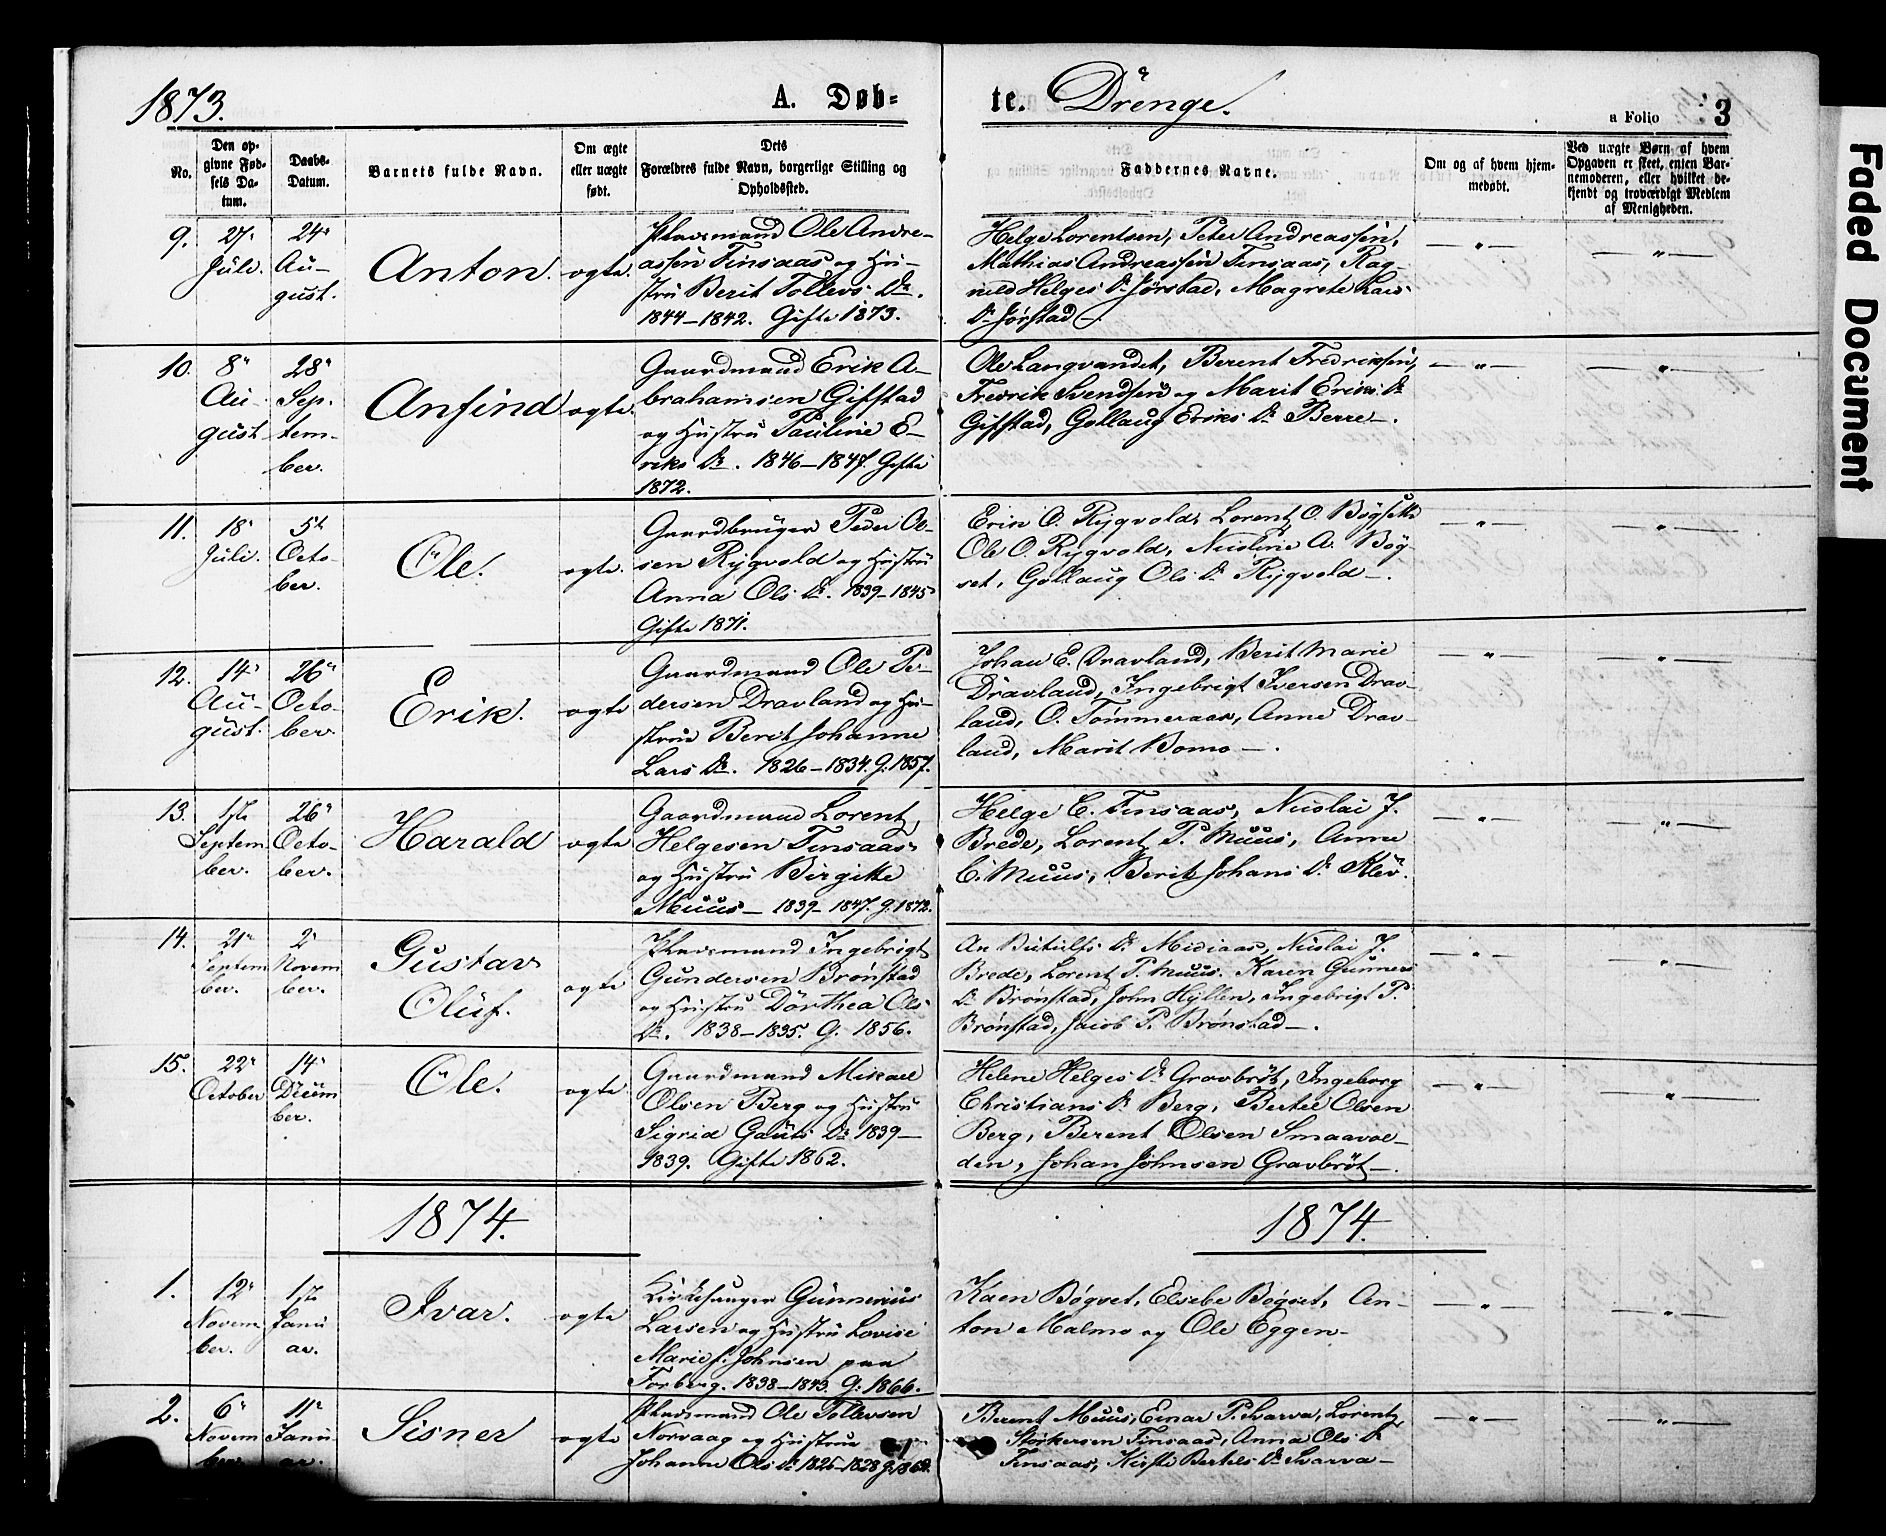 1873.
A. Døb-
te. Drenge.
a Folio 3
No.
Den op-
givne Fød-
sels Da-
tum.
Daabs-
Datum.
Barnets fulde Navn.
Om ægte
eller uægte
født.
Dets
Forældres fulde Navn, borgerlige Stilling og
Opholdssted.
Faddernes Navne.
Om og af hvem hjem-
medøbt.
Ved uægte Børn af hvem
Opgaven er skeet, enten Bar-
nemoderen, eller hvilket be-
kjendt og troværdigt Medlem
af Menigheden.
9.
27
Juli.
24
Au-
gust.
Anton.
ægte.
Pladsmand Ole Andre-
assen Finsaas og Hu-
stru Berit Tollevs Dr.
1844-1842. Gifte 1873.
Helge Lorentsen, Peter Andreassen,
Mathias Andreassen Finsaas, Rag-
nild Helges Dr Jørstad, Magrete Lars
Dr Jørstad -
10.
8
Au-
gust
28
Sep-
tem-
ber.
Anfind
ægte
Gaardmand Erik A-
brahamsen Gifstad
og Hustru Pauline E-
riks Dr. 1846-1847. Gifte
1872.
Ole Langvandet, Berent Fredriksen,
Fredrik Svendsen og Marit Eriks Dr
Gifstad, Gollaug Eriks Dr Berre -.
11.
18
Juli.
5
Octo-
ber.
Ole.
ægte.
Gaardbruger Peder Ol-
sen Rygvold og Hustru
Anna Ols Dr. 1839-1845
Gifte 1871.
Erik O. Rygvold, Lorentz O. Bøgsette
Ole O. Rygvold, Nicoline A. Bøg-
set, Gollaug Ols Dr Rygvold -.
12.
14
Au-
gust.
26
Octo-
ber.
Erik.
ægte
Gaardmand Ole Pe-
dersen Dravland og Hu-
stru Berit Johanne
Lars Dr. 1826-1834. G. 1857.
Johan E. Dravland, Berit Marie
Dravland, Ingebrigt Iversen Drav-
land, O. Tømmeraas, Anne Drav-
land, Marit Bomo -.
13.
Septem
ber.
26
Octo-
ber.
Harald
ægte
Gaardmand Lorentz
Helgesen Finsaas
og Hustru Birgitte
Muus - 1839-1847. G. 1872.
Helge C. Finsaas, Nicolai J.
Brede, Lorentz P. Muus, Anne
C. Muus, Berit Johans Dr Klev.
14.
21
Septem
ber.
2
Novem
ber.
Gustav
Oluf.
ægte
Pladsmand Ingebrigt
Gundersen Brønstad
og Hustru Dorthea Ols
Dr. 1838-1835. G. 1856.
Dr Midiaas, Nicolai J.
Brede, Lorentz P. Muus. Karen Gunners
Dr Brønstad, John Hyllen, Ingebrigt P.
Brønstad, Jacob P. Brønstad -.
15.
22
October
14
Decem
ber.
Ole.
ægte
Gaardmand Mikael
Olsen Berg og Hustru
Sigrid Gauts Dr 1839-
1839. Gifte 1862.
Helene Helges Dr Gravbrøt, Ingeborg
Christians Dr Berg, Bertel Olsen
Berg, Berent Olsen Smaavol-
den, Johan Johnsen Gravbrøt -.
1874.
1874.
1.
12
Novem
ber.
Janu
ar.
Ivar.
ægte
Kirkesanger Gunnerius
Larsen og Hustru Lovise
Marie f. Johnsen paa
Forberg. 1838-1843. G: 1866.
Karen Bøgset, Elsebe Bøgset, An-
ton Malmo og Ole Eggen -
2.
6
Novem
ber
11
Janu-
ar.
Sisner
ægte
Pladsmand Ole Tollevsen
Norvaag og Hustru
Johanne Ols Dr 1825-1828 G.
Berent Muus, Einar P. Kvarva, Lorentz
Størkersen Finsaas, Anna Ols Dr
Finsaas, Kirsti Bertels Dr Kvarva -
Faded Document